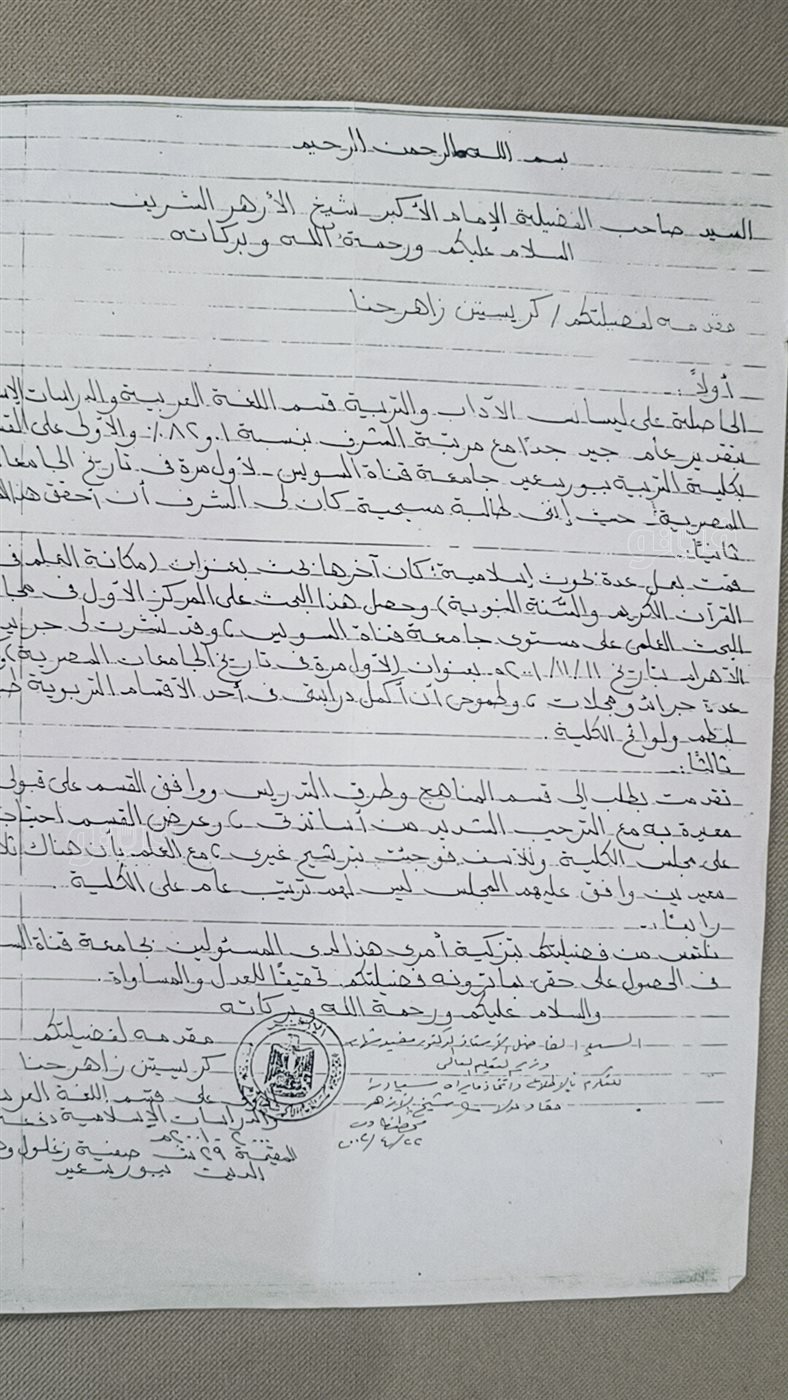 بسم الله الرحمن الرحيم
السيد صاحب الفضيلة الإمام الأكبر شيخ الأزهر الشريف
السلام عليكم ورحمة الله وبركاته
مقدمه لفضيلتكم / كريستين زاهر حنا
أولاً:
الحاصلة على ليسانس الآداب والتربية قسم اللغة العربية والدراسات الإسـ
بتقدير عام جيد جدًا مع مرتبة الشرف بنسبة ٨٢,٠١٪ والأولى على القسـ
بكلية التربية ببورسعيد جامعة قناة السويس - لأول مرة فى تاريخ الجامعا
المصرية؛ حيث إننى طالبة مسيحية كان لى الشرف أن أحقق هذا
ثانيًا:
قمت بعمل عدة بحوث إسلامية؛ كان آخرها بحث بعنوان (مكانة العلم فى
القرآن الكريم والسُّنة النبوية) وحصل هذا البحث على المركز الأول فى مجا
البحث العلمى على مستوى جامعة قناة السويس، وقد نشرت لى جريد
الأهرام بتاريخ ١١/١١/٢٠٠١م بعنوان (لأول مرة فى تاريخ الجامعات المصرية) و
عدة جرائد ومجلات، وطموحى أن أكمل دراستى فى أحد الأقسام التربوية
لنظم ولوائح الكلية.
ثالثًا:
تقدمت بطلب إلى قسم المناهج وطرق التدريس ووافق القسم على قبولى
معيدة به مع الترحيب الشديد من أساتذتى، وعرض القسم احتياجـ
على مجلس الكلية وللأسف فوجئت بترشيح غيرى، مع العلم بأن هناك ثلا
معيدين وافق عليهم المجلس ليس لهم ترتيب عام على الكلية.
رابعًا:
نلتمس من فضيلتكم تزكية أمرى هذا لدى المسئولين بجامعة قناة السـ
فى الحصول على حقى بما ترونه فضيلتكم تحقيقًا للعدل والمساواة.
والسلام عليكم ورحمة الله وبركاته
السيد الفاضل الأستاذ الدكتور مفيد شهاب
وزير التعليم العالى
للتكرم بالاطلاع واتخاذ ما يراه سيادته
شيخ الأزهر
٢٢/٤/٢٠٠٢
مقدمه لفضيلتكم
كريستين زاهر حنا
على قسم اللغة العربـ
والدراسات الإسلامية دفعة
٢٠٠٠ - ٢٠٠١م
المقيمة ٢٩ ش صفية زغلول
ببورسعيد